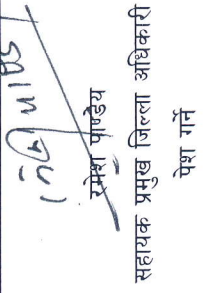 रमेश पाण्डेय
सहायक प्रमुख जिल्ला अधिकारी
पेश गर्ने